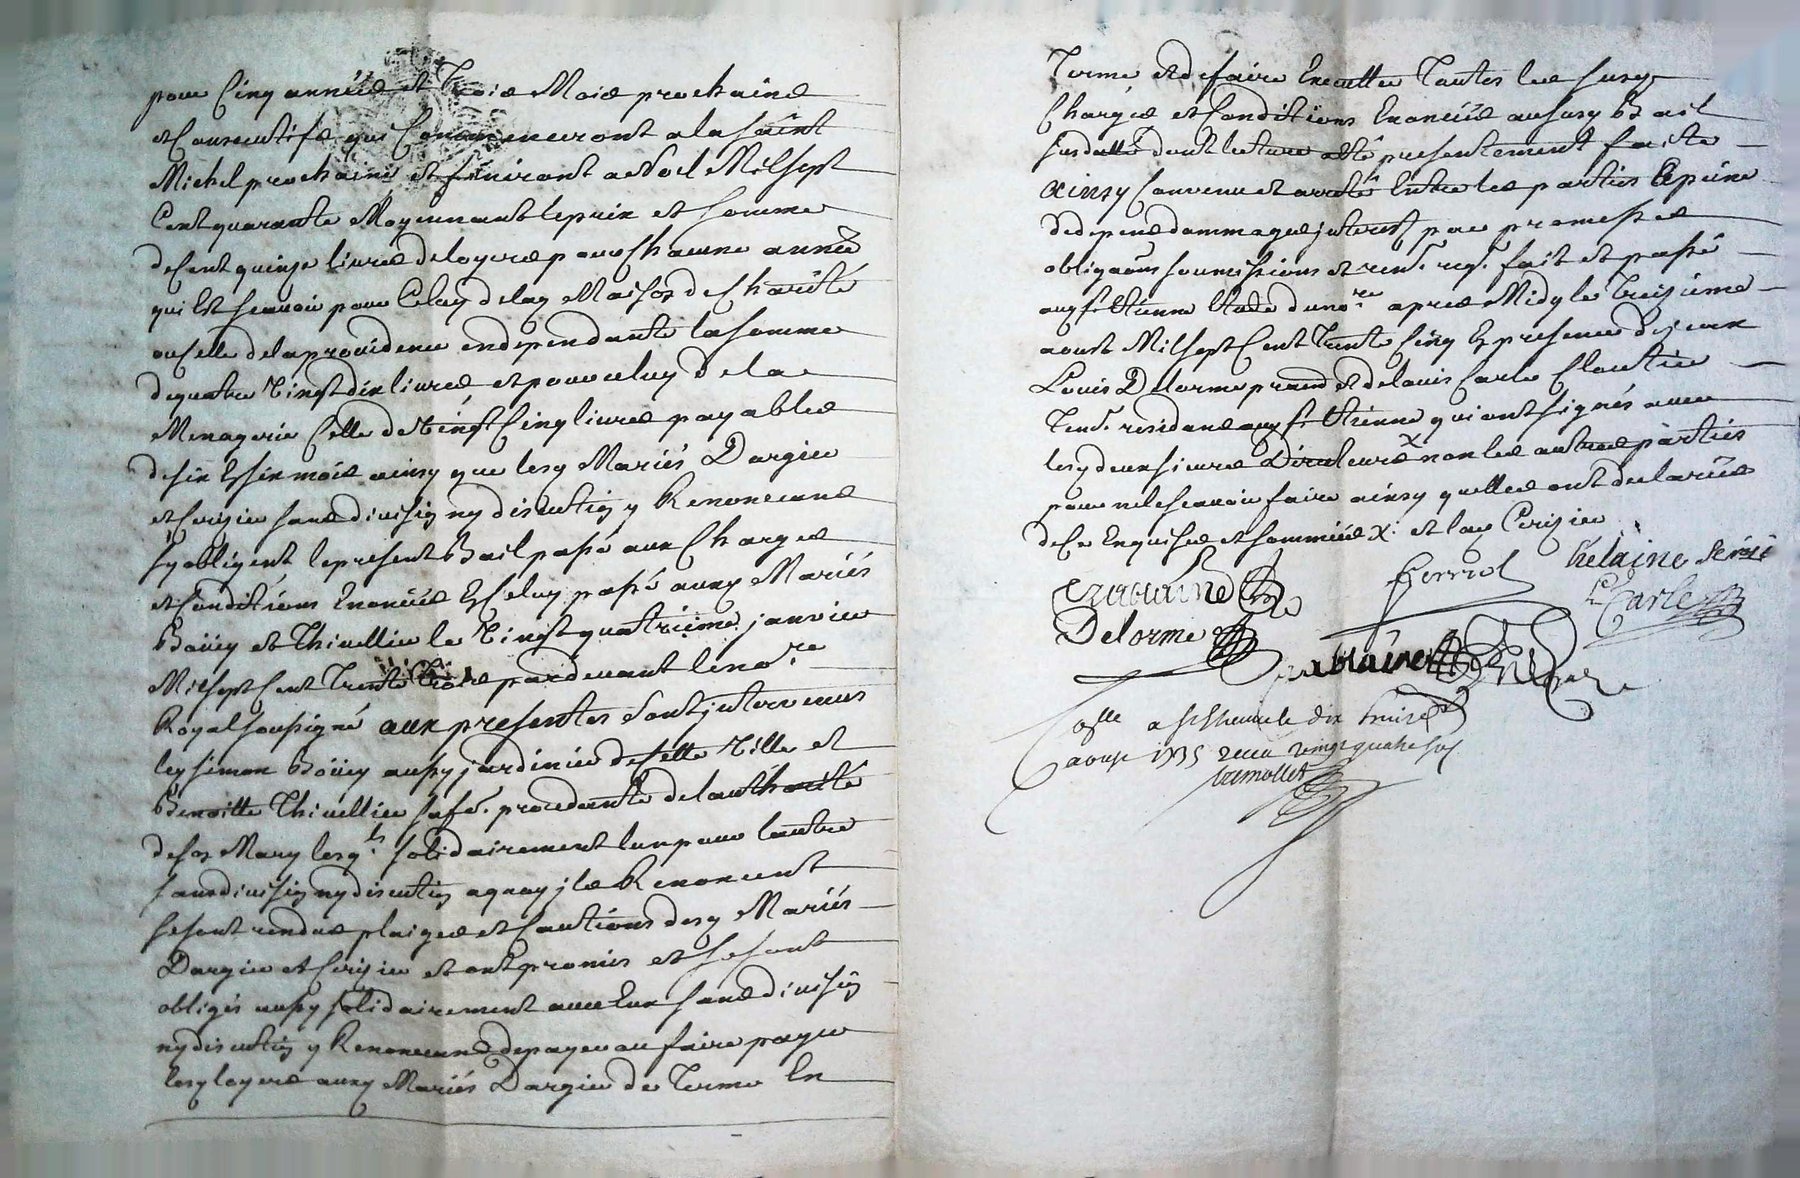 pour Cinq années et Trois Mois prochains
et Consecutifs qui Commenceront a la saint
Michel prochaine et finiront a Noel Milsept
Cent quarante Moyennant le prix et somme
de Cent quinze livres de loyers pour Chacune année
qui Est scavoir pour Celuy de lad Maison de Charité
ou Celle de la providence endependante la somme
de quatre Vingt dix livres et pour celuy de la
Menagerie Celle de Vingt Cinq livres payables
de six En six mois ainsy que lesd Mariés Dargier
et Cerizier sans division ny discution y Renoncans
s'y obligent le present Bail passé aux Charges
et Conditions Enoncées En Celuy passé auxd Mariés
Boüey et Thivellier le Vingt quatrieme janvier
Milsept Cent Trente Trois pardevant le no.re
Royal soussigné aux presentes sont intervenus
led simon Boüey aussy jardinier de Cette Ville et
Benoitte Thivellier sa fe. procedante de l'authorité
de son Mary lesq.ls solidairement lun pour lautre
sans division ny discution a quoy ils Renoncent
se sont rendus plaiges et Cautions desd Mariés
Dargier et Cerizier et ont promis et se sont
obligés aussy solidairement avec Eux sans division
ny discution y Renoncans de payer ou faire payer
lesd loyers auxd Mariés Dargier de Terme En
Terme et de faire Executter Toutes les susd
Charges et Conditions Enoncées au susd Bail
susdatté dont lecture a Eté presentement faite
ainsy Convenu et arreté Entre les parties a peine
de depens dommages interest par promesses
obliga͠ons soumissions et ren. req. fait et passé
aud st. Etienne Etude du no.re apres Midy le Treizieme
aoust Milsept Cent Trente Cinq En presence de jean
Louis Delorme pratt. et de Louis Carle Cloutier
Tem. residans aud st. Etienne qui ont signés avec
lesd deux sieurs Directeurs x non les autres parties
pour ne le scavoir faire ainsy quelles ont declarées
de Ce Enquises et sommées x. et lad Cerizier
Delorme
L Carle
Colle a St Etienne le dix huit
aoust 1735 receu vingt quatre sols